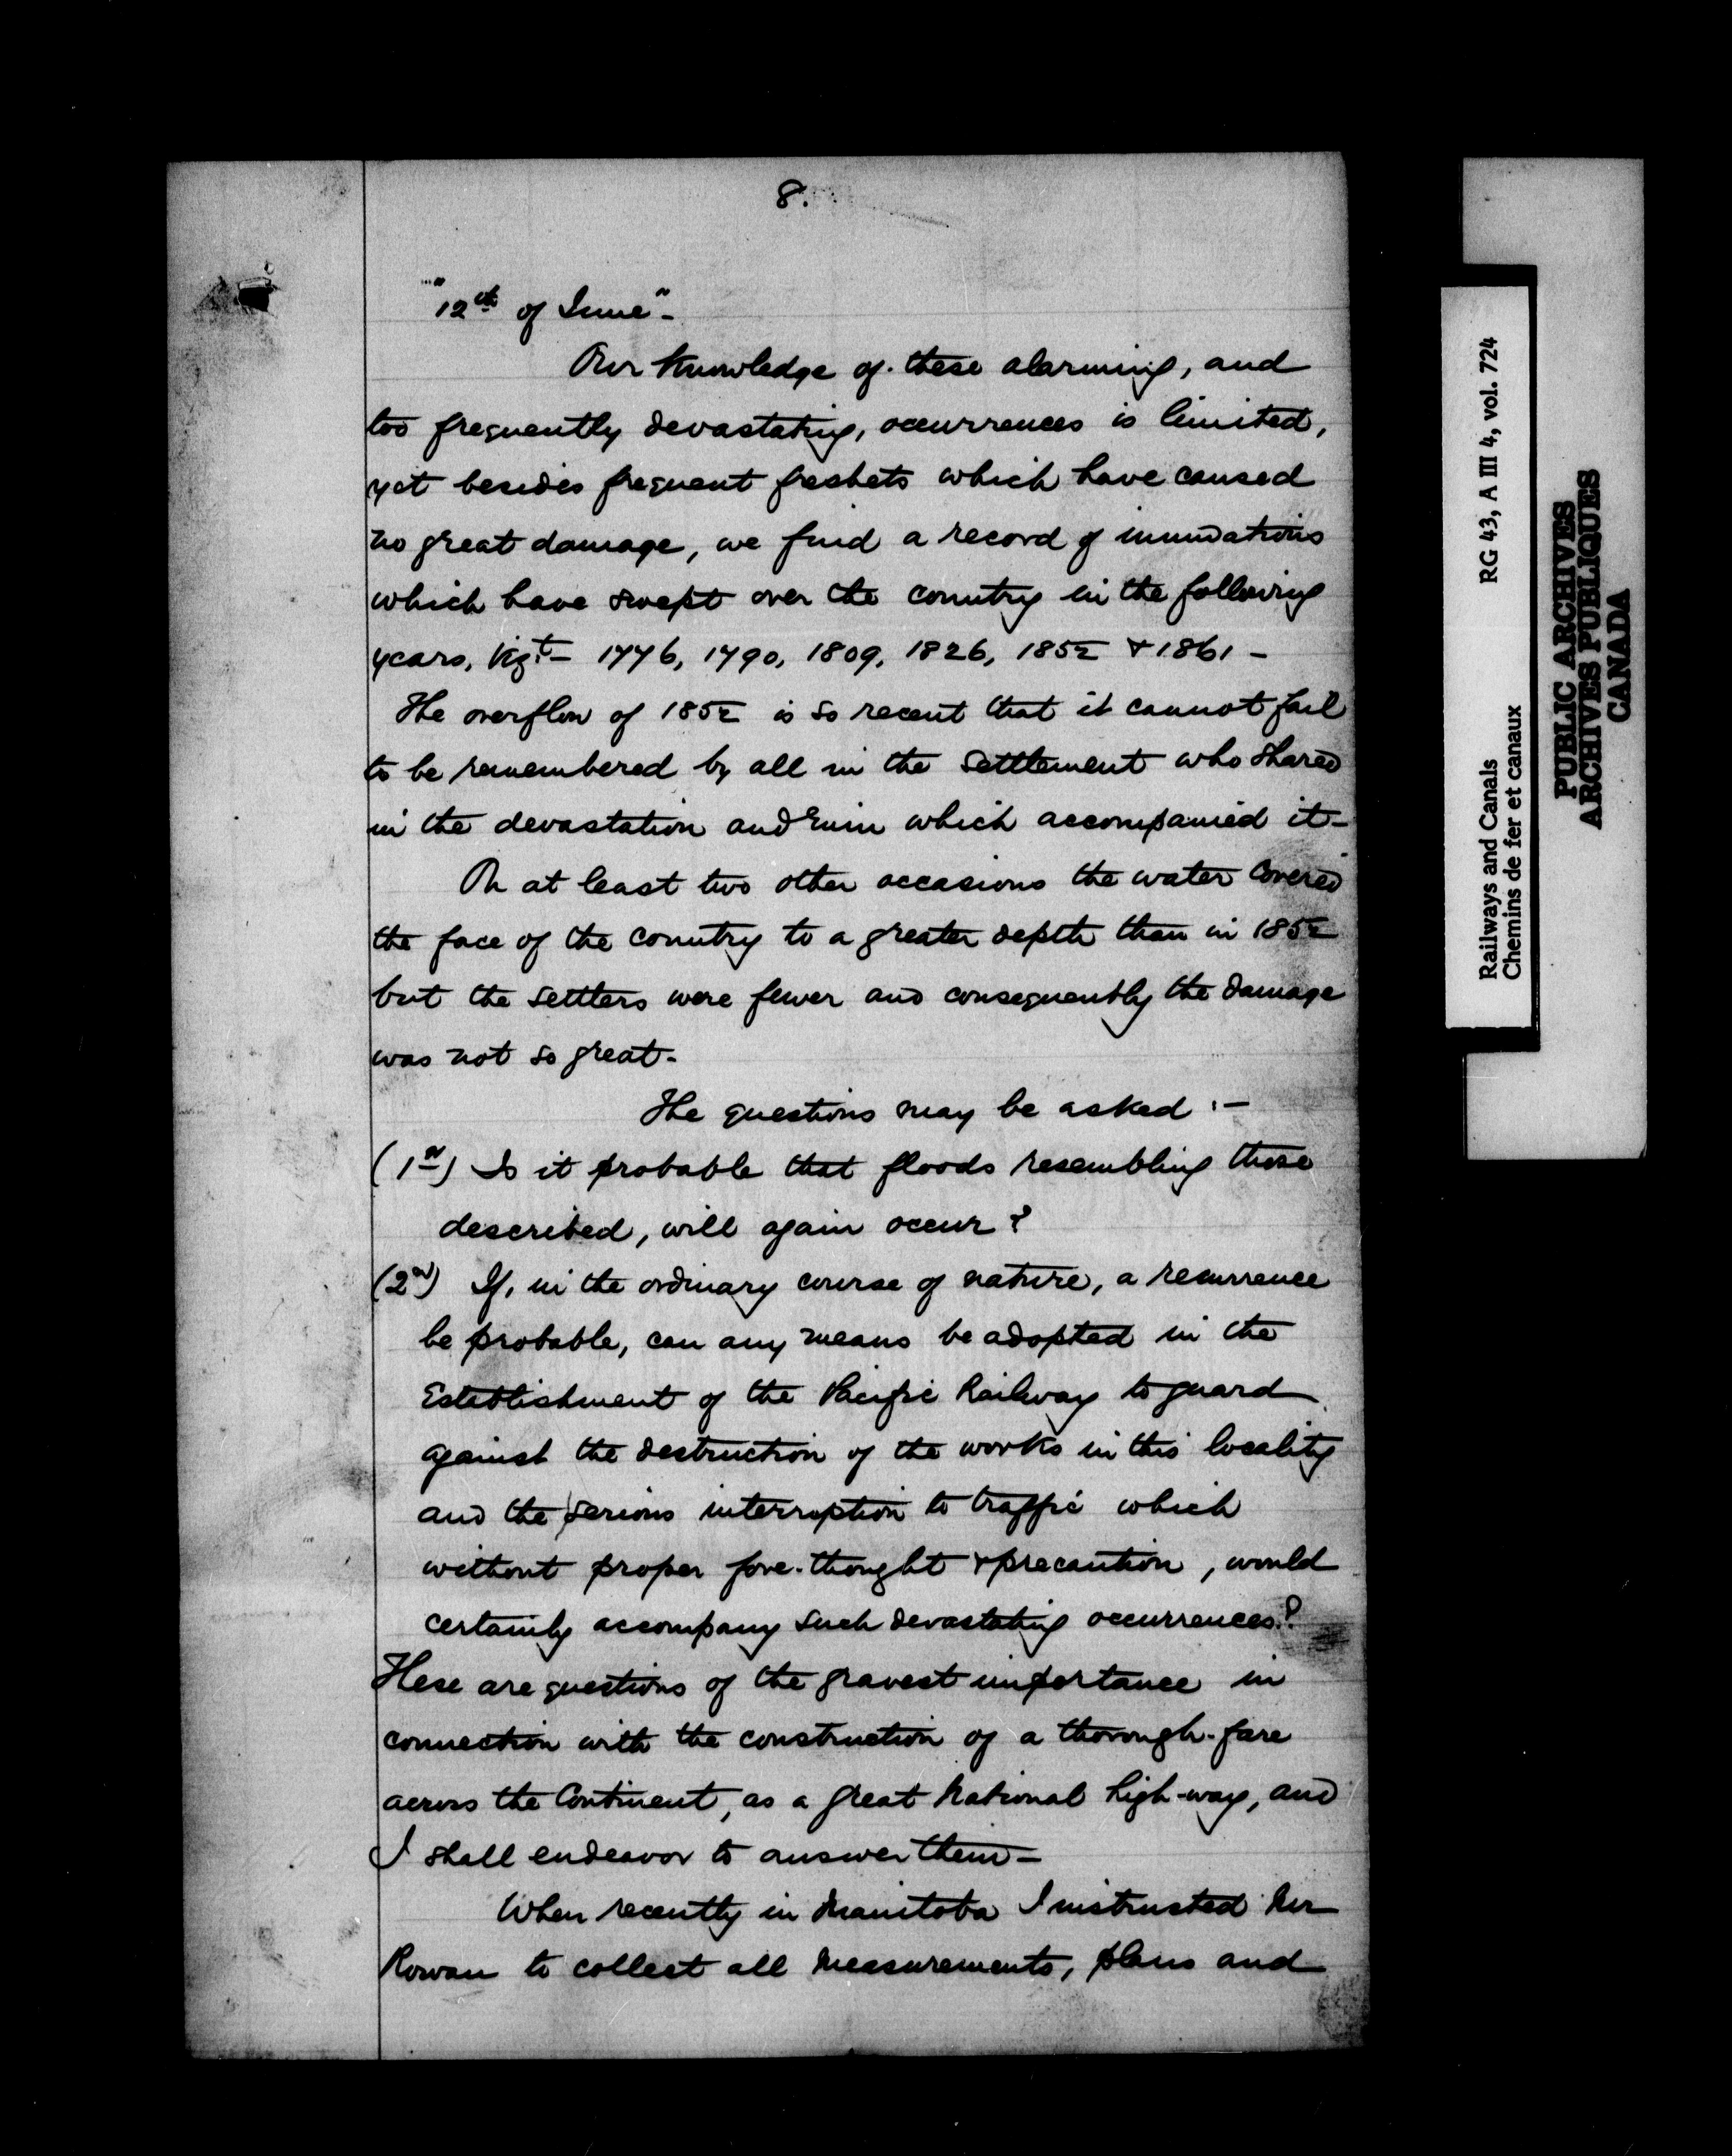 8.
"12th of June"-
Our knowledge of these alarming, and
too frequently devastating, occurrences is limited,
yet besides frequent freshets which have caused
no great damage, we find a record of inundations
which have swept over the country in the following
years, Vizt- 1776, 1790, 1809, 1826, 1852 & 1861 -
The overflow of 1852 is so recent that it cannot fail
to be remembered by all in the settlement who shared
in the devastation and ruin which accompanied it-
On at least two other occasions the water covered
the face of the country to a greater depth than in 1852
but the settlers were fewer and consequently the damage
was not so great-
The questions may be asked :-
(1st) Is it probable that floods resembling those
described, will again occur?
(2nd) If, in the ordinary course of nature, a recurrence
be probable, can any means be adopted in the
Establishment of the Pacific Railway to guard
against the destruction of the works in this locality
and the serious interruption to traffic which
without proper fore-thought & precaution, would
certainly accompany such devastating occurrences?
These are questions of the gravest importance in
connection with the construction of a thorough-fare
across the Continent, as a great National high-way, and
I shall endeavor to answer them-
When recently in Manitoba I instructed Mr
Rowan to collect all measurements, plans and
Railways and Canals RG 43, A III 4, vol. 724
Chemins de fer et canaux
PUBLIC ARCHIVES
ARCHIVES PUBLIQUES
CANADA